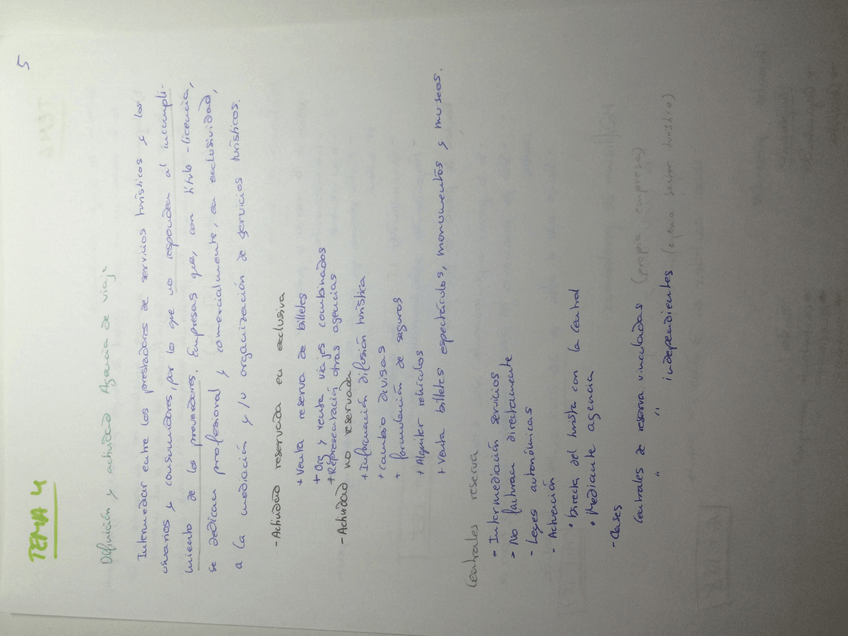 5
TEMA 4
Definición y actividad Agencia de viaje
Intermediar entre los prestadores de servicios turísticos y los
usuarios y consumidores, por lo que no responden al incumpli-
miento de los proveedores. Empresas que, con título-licencia,
se dedican profesional y comercialmente, en exclusividad,
a la mediación y/u organización de servicios turísticos.
- Actividad reservada en exclusiva
+ Venta reserva de billetes
+ Org y venta viajes combinados
+ Representación otras agencias
- Actividad no reservada
+ Información difusión turística
+ Cambio divisas
+ formulación de seguros
+ Alquiler vehículos
+ Venta billetes espectáculos, monumentos y museos.
Centrales reserva
- Intermediación servicios
- No facturan directamente
- Leyes autonómicas
- Actuación
• Directa del turista con la central
• Mediante agencia
- Clases
Centrales de reserva vinculadas (propia empresa)
" " independientes